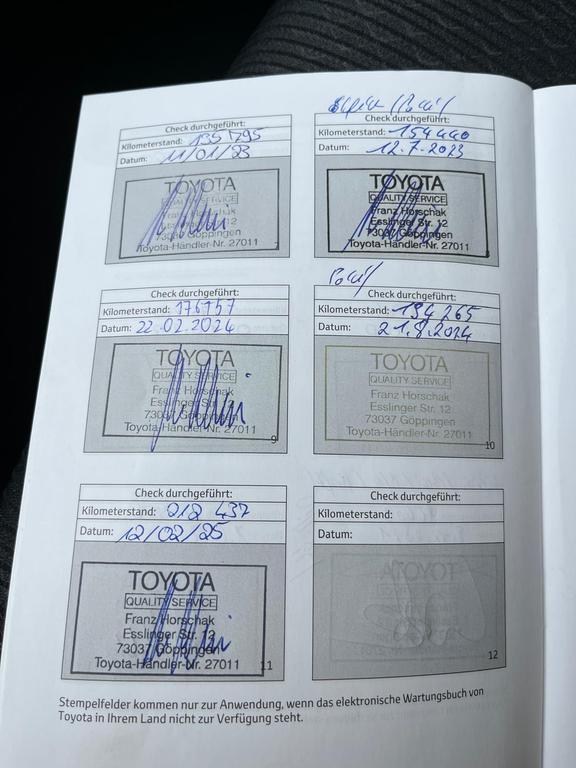 Check durchgeführt:
Kilometerstand: 135 795
Datum: 11/01/23
TOYOTA
QUALITY SERVICE
Franz Horschak
Esslinger Str. 12
73037 Göppingen
Toyota-Händler-Nr. 27011
7
Check durchgeführt:
Kilometerstand: 154440
Datum: 12.7.2023
TOYOTA
QUALITY SERVICE
Franz Horschak
Esslinger Str. 12
73037 Göppingen
Toyota-Händler-Nr. 27011
Check durchgeführt:
Kilometerstand: 176757
Datum: 22.02.2024
TOYOTA
QUALITY SERVICE
Franz Horschak
Esslinger Str. 12
73037 Göppingen
Toyota-Händler-Nr. 27011
9
Check durchgeführt:
Kilometerstand: 194 265
Datum: 21.8.2024
TOYOTA
QUALITY SERVICE
Franz Horschak
Esslinger Str. 12
73037 Göppingen
Toyota-Händler-Nr. 27011
10
Check durchgeführt:
Kilometerstand: 212 437
Datum: 12/02/25
TOYOTA
QUALITY SERVICE
Franz Horschak
Esslinger Str. 12
73037 Göppingen
Toyota-Händler-Nr. 27011
11
Check durchgeführt:
Kilometerstand:
Datum:
12
Stempelfelder kommen nur zur Anwendung, wenn das elektronische Wartungsbuch von
Toyota in Ihrem Land nicht zur Verfügung steht.